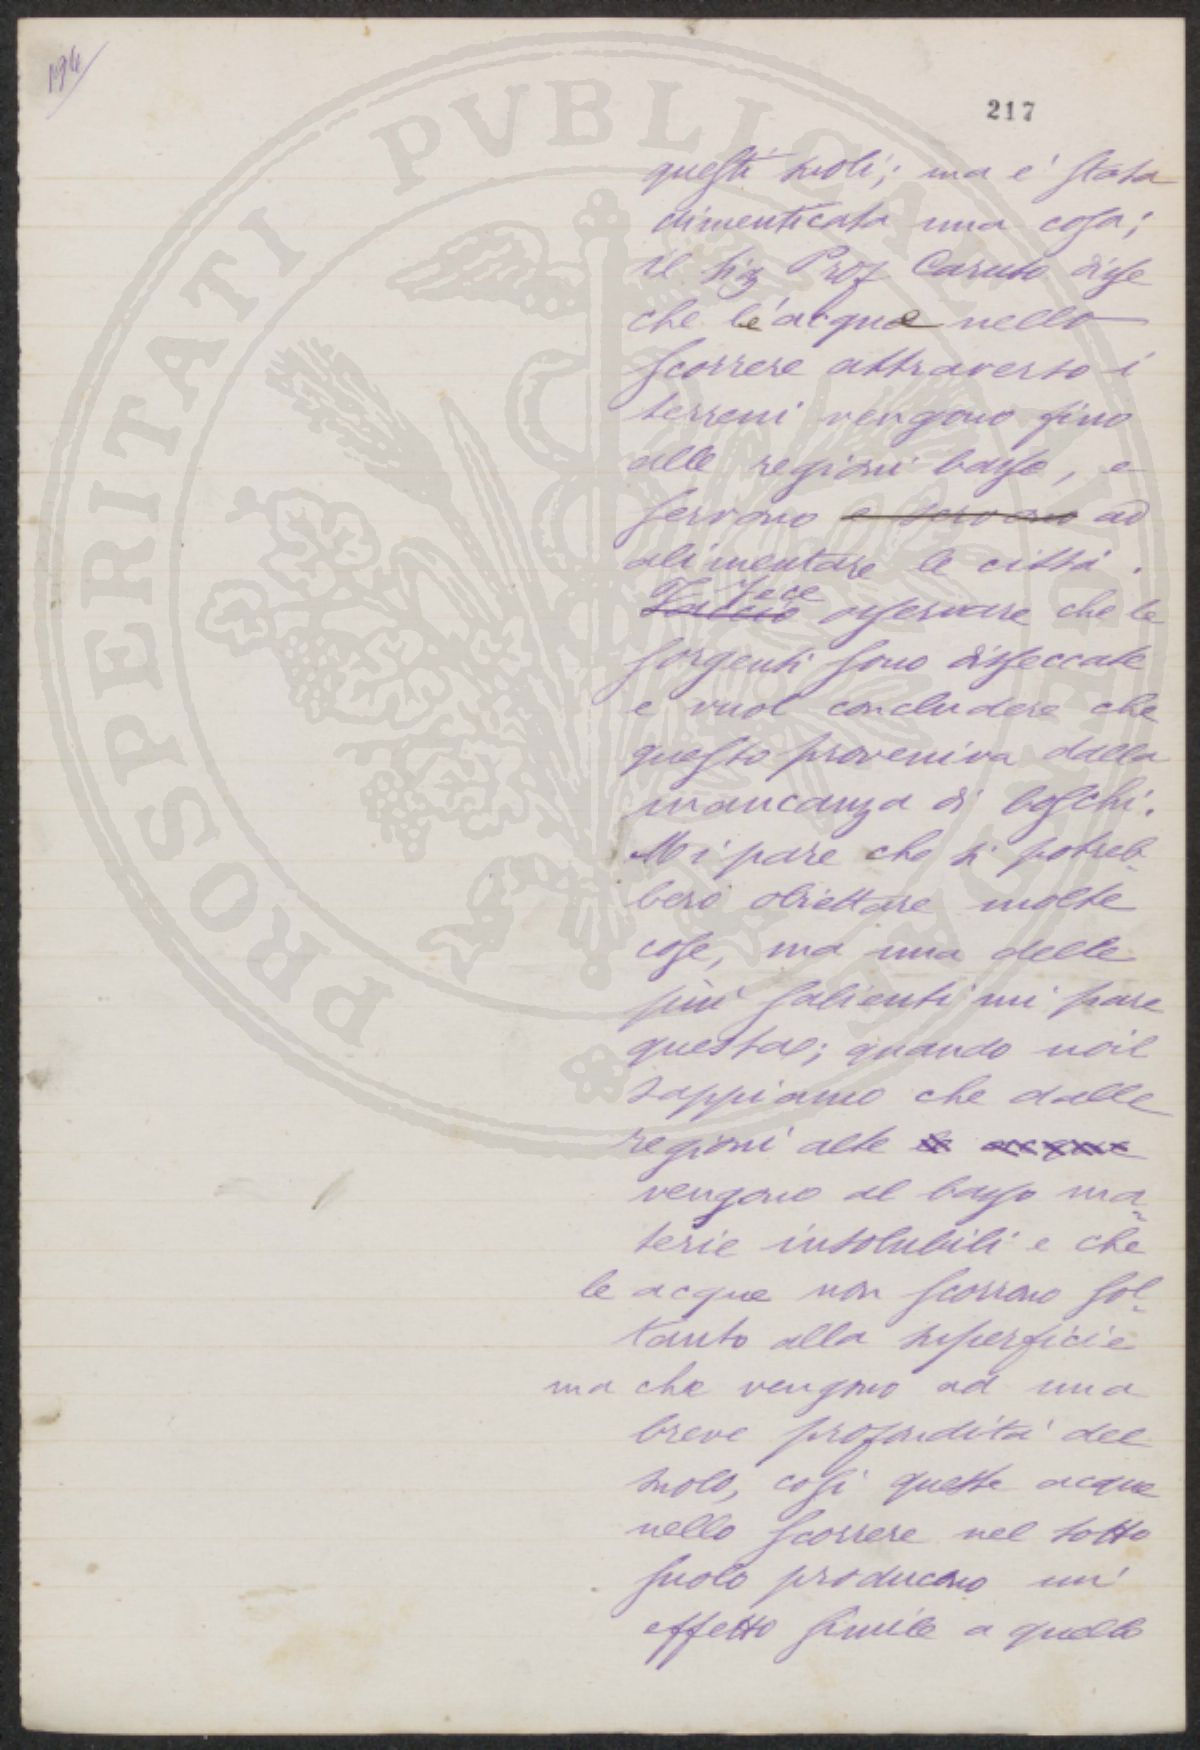 194
217
PROSPERITATI PVBLICAE AVGENDAE
questi suoli; ma e' stata
dimenticata una cosa;
il Sig Prof Caruso disse
che le acque nello
scorrere attraverso i
terreni vengono fino
alle regioni basse, e
servono e servono ad
alimentare le città.
Faccio fece osservare che le
sorgenti sono disseccate
e vuol concludere che
questo proveniva dalla
mancanza di boschi.
Mi pare che si potreb-
bero obiettare molte
cose, ma una delle
più salienti mi pare
questa; quando noi
sappiamo che dalle
regioni alte le acque
vengono al basso ma-
terie insolubili e che
le acque non scorrono sol-
tanto alla superficie
ma che vengono ad una
breve profondità del
suolo, così queste acque
nello scorrere nel sotto
suolo producono un'
effetto simile a quello